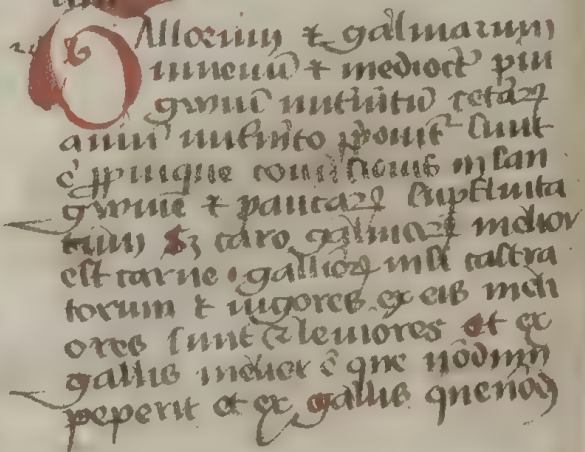 Gallorum & galinarum
iuuenū & medioctr̄ pin
guiū nutrimtū cetaꝝ
auiū nutrimto
sunt
conūsionis in san
guinē & paucaꝝ supfluita
tum Sꝫ caro galinaꝝ melior
est carne galloꝝ nisi castra
torum & iugores ex eis meli
ores sunt & leuiores Et ex
gallis melior ē que nōdum
peperit et ex gallis que nōd